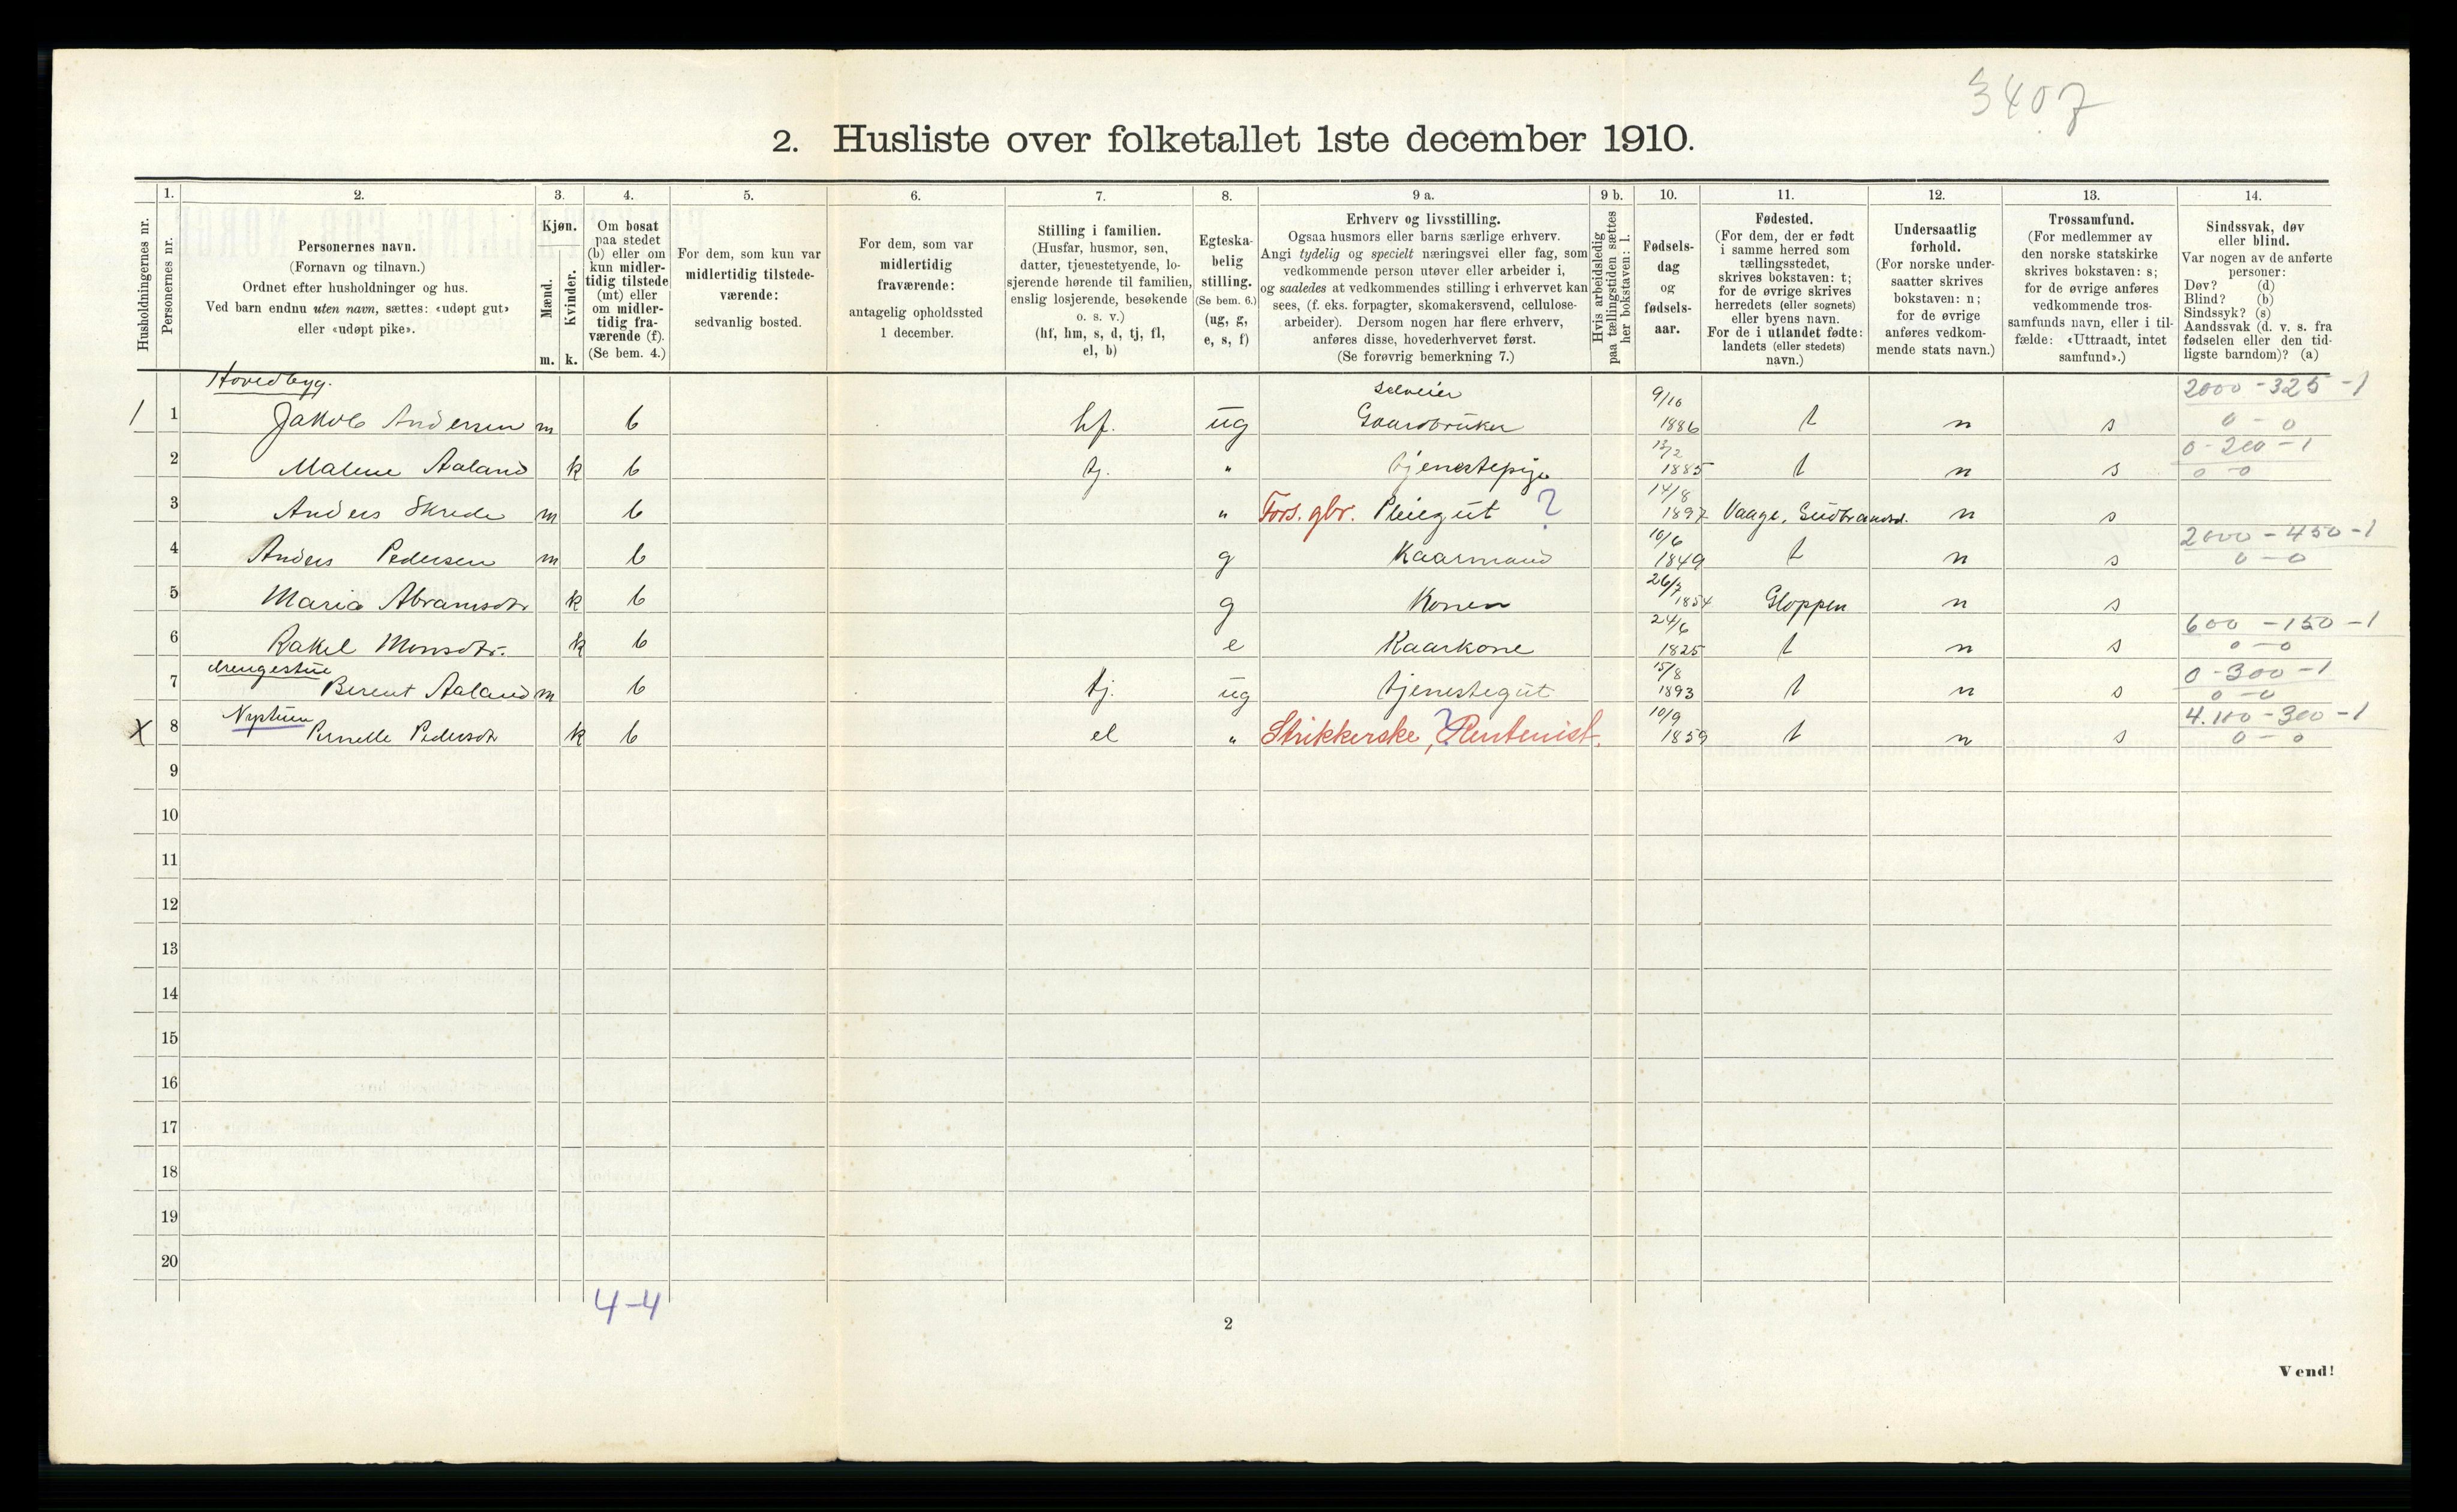 3407
2. Husliste over folketallet 1ste december 1910.
Husholdningernes nr.
1. Personernes nr.
2.
Personernes navn.
(Fornavn og tilnavn.)
Ordnet efter husholdninger og hus.
Ved barn endnu uten navn, sættes: «udøpt gut»
eller «udøpt pike».
3.
Kjøn.
Mænd. Kvinder.
m. k.
4.
Om bosat
paa stedet
(b) eller om
kun midler-
tidig tilstede
(mt) eller
om midler-
tidig fra-
værende (f).
(Se bem. 4.)
5.
For dem, som kun var
midlertidig tilstede-
værende:
sedvanlig bosted.
6.
For dem, som var
midlertidig
fraværende:
antagelig opholdssted
1 december.
7.
Stilling i familien.
(Husfar, husmor, søn,
datter, tjenestetyende, lo-
sjerende hørende til familien,
enslig losjerende, besøkende
o. s. v.)
(hf, hm, s, d, tj, fl,
el, b)
8.
Egteska-
belig
stilling.
(Se bem. 6.)
(ug, g,
e, s, f)
9 a.
Erhverv og livsstilling.
Ogsaa husmors eller barns særlige erhverv.
Angi tydelig og specielt næringsvei eller fag, som
vedkommende person utøver eller arbeider i,
og saaledes at vedkommendes stilling i erhvervet kan
sees, (f. eks. forpagter, skomakersvend, cellulose-
arbeider). Dersom nogen har flere erhverv,
anføres disse, hovederhvervet først.
(Se forøvrig bemerkning 7.)
9 b.
Hvis arbeidsledig
paa tællingstiden sættes
her bokstaven: l.
10.
Fødsels-
dag
og
fødsels-
aar.
11.
Fødested.
(For dem, der er født
i samme herred som
tællingsstedet,
skrives bokstaven: t;
for de øvrige skrives
herredets (eller sognets)
eller byens navn.
For de i utlandet fødte:
landets (eller stedets)
navn.)
12.
Undersaatlig
forhold.
(For norske under-
saatter skrives
bokstaven: n;
for de øvrige
anføres vedkom-
mende stats navn.)
13.
Trossamfund.
(For medlemmer av
den norske statskirke
skrives bokstaven: s;
for de øvrige anføres
vedkommende tros-
samfunds navn, eller i til-
fælde: «Uttraadt, intet
samfund».)
14.
Sindssvak, døv
eller blind.
Var nogen av de anførte
personer:
Døv? (d)
Blind? (b)
Sindssyk? (s)
Aandssvak (d. v. s. fra
fødselen eller den tid-
ligste barndom)? (a)
Hovedbyg. Selveier 9/10 2000-325-1
1 1 Jakob Andersen m b hf. ug Gaardbruker 1886 t n s 0-0
13/2 0-200-1
2 Malene Aaland k b tj. " tjenestepige 1885 t n s 0-0
14/8
3 Anders Skrede m b " Fors. gbr. Pleiegut ? 1897 Vaage, Gudbrandsd. n s
10/6 2000-450-1
4 Anders Pedersen m b g Kaarmand 1849 t n s 0-0
26/7
5 Maria Abramsdtr k b g Konen 1854 Gloppen n s
24/6 600-150-1
6 Rakel Monsdtr. k b e Kaarkone 1825 t n s 0-0
drengestue 15/8 0-300-1
7 Berent Aaland m b tj. ug tjenestegut 1893 t n s 0-0
Nystuen 10/9 4.100-300-1
X 8 Pernelle Pedersdtr k b el " Strikkerske, ? Rentenist. 1859 t n s 0-0
9
10
11
12
13
14
15
16
17
18
19
20
4-4
2
Vend!